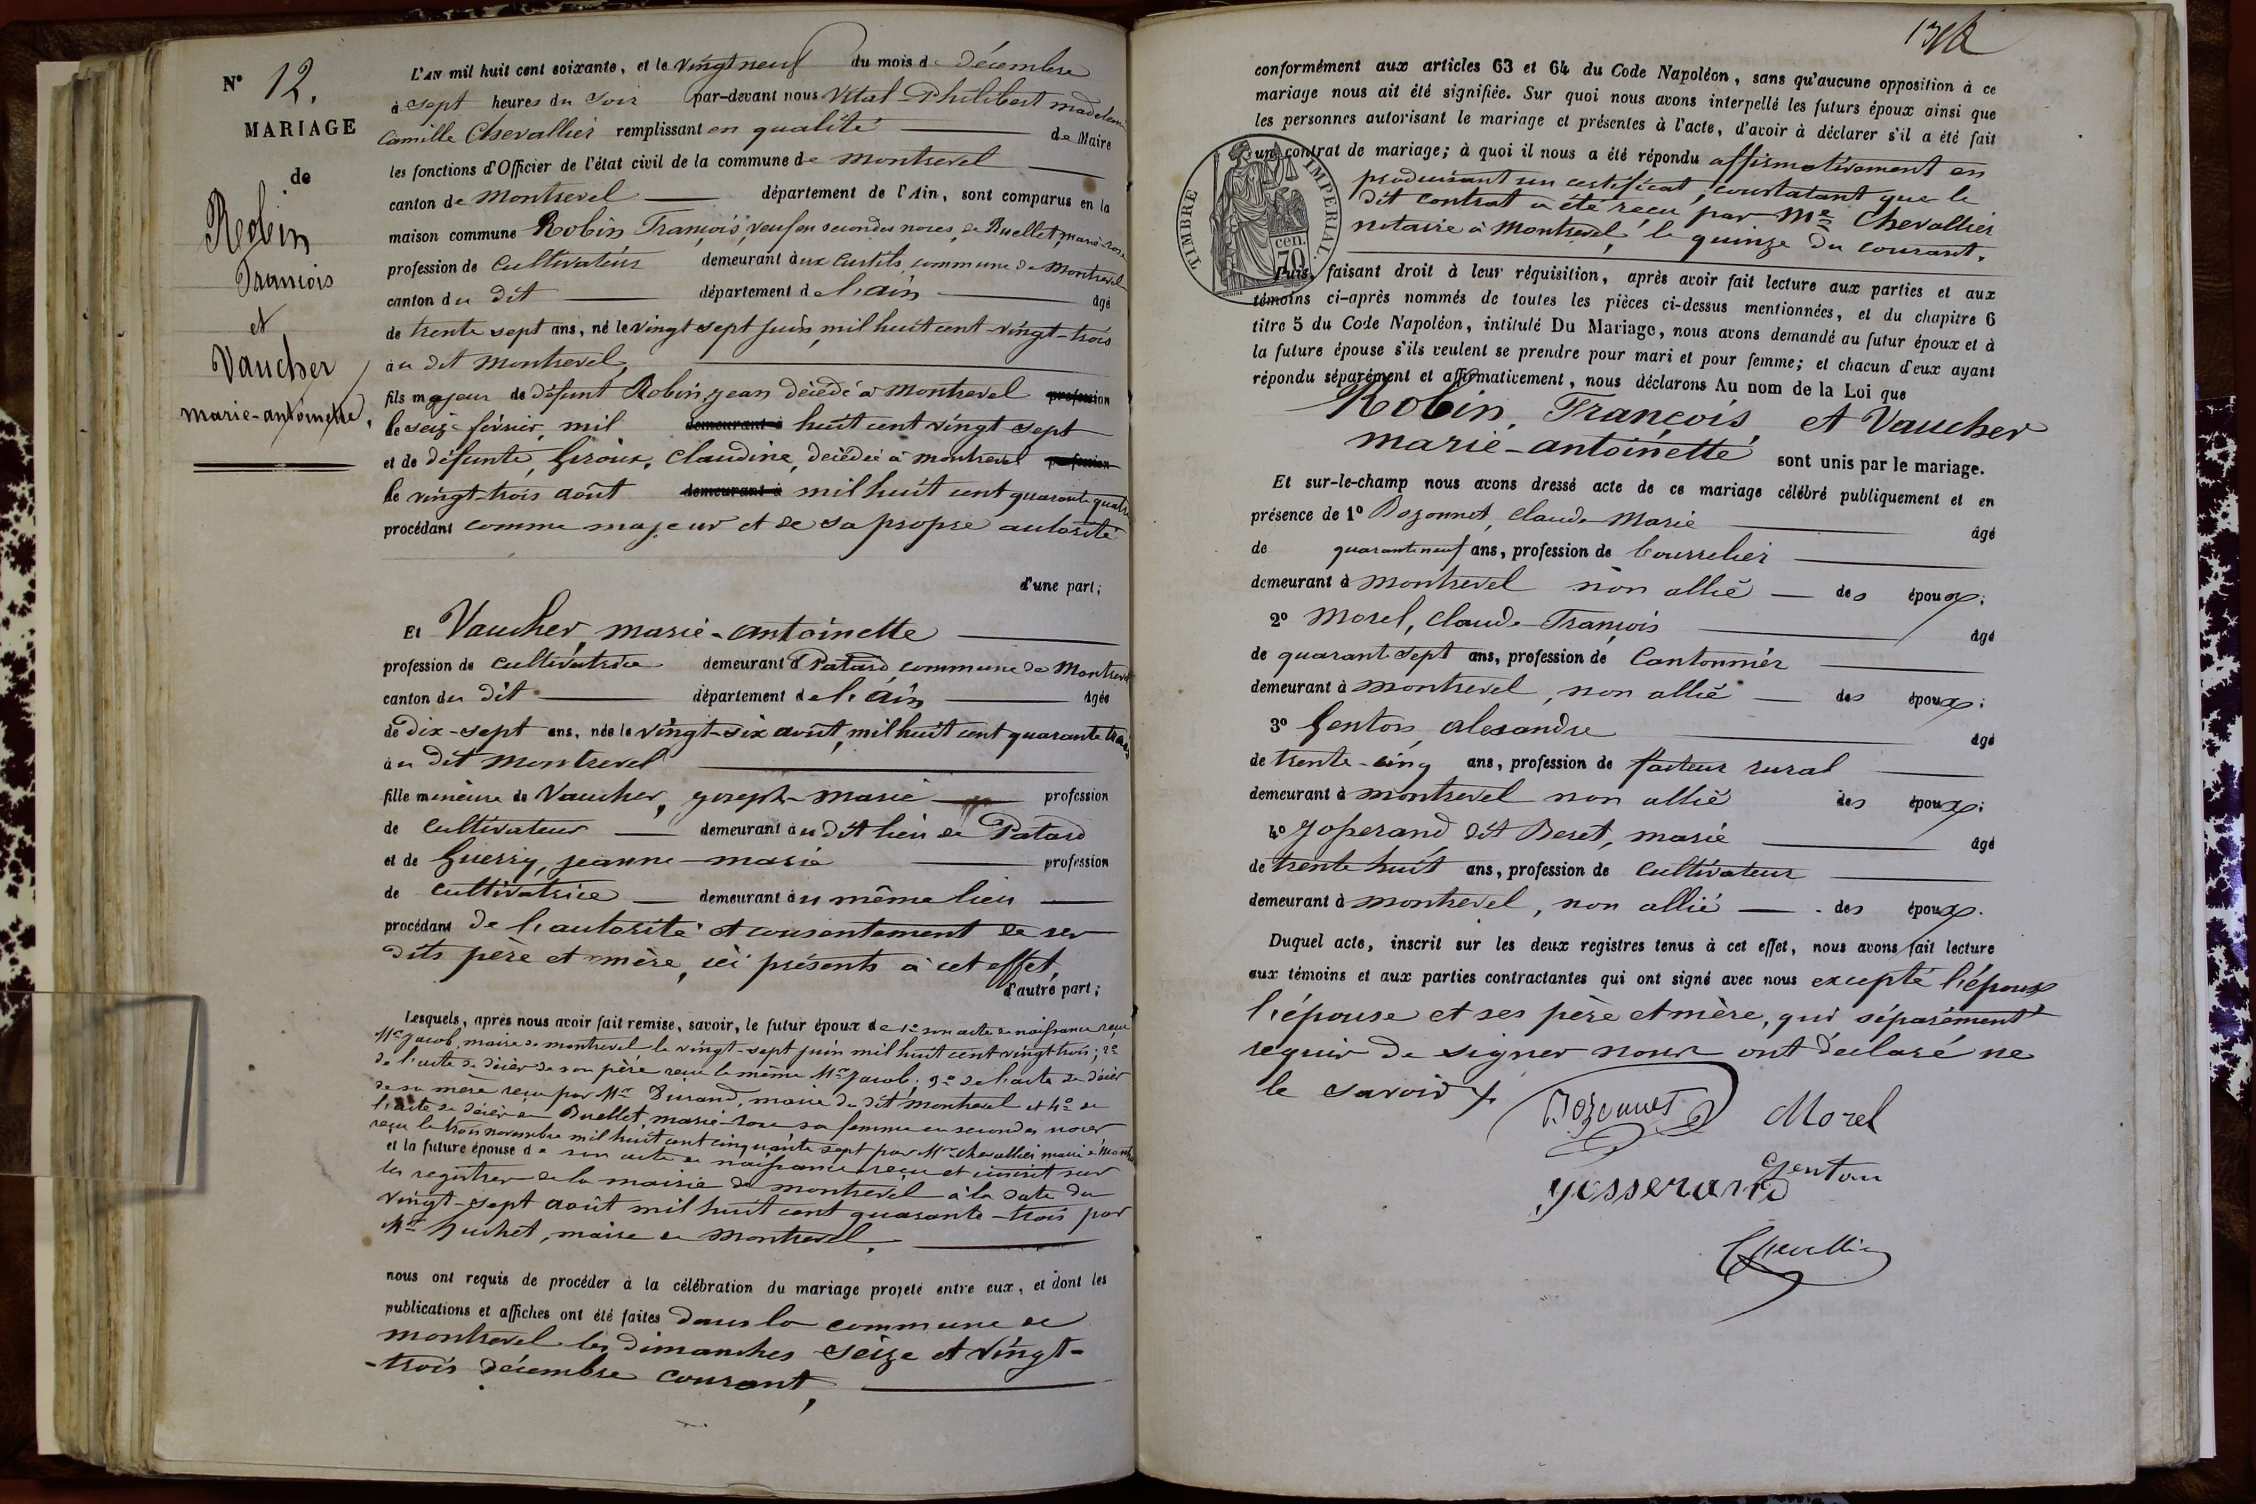 N° 12.
MARIAGE
de
Robin
François
et
Vaucher
marie-antoinette.
L'AN mil huit cent soixante, et le vingt neuf du mois de décembre
à sept heures du soir par-devant nous Vital-Philibert madelain
Camille Chevallier remplissant en qualité de Maire
les fonctions d'Officier de l'état civil de la commune de montrevel
canton de montrevel département de l'Ain, sont comparus en la
maison commune Robin François, veuf en secondes noces, de Buellet marie-rose
profession de cultivateur demeurant aux Curtils, commune de Montrevel
canton du dit département de l'ain âgé
de trente sept ans, né le vingt sept juin, mil huit cent-vingt-trois
au dit montrevel,
fils majeur de défunt Robin, jean décédé à montrevel profession
le seize février, mil demeurant à huit cent vingt sept
et de défunte, Giroux, Claudine, décédée à montrevel profession
le vingt-trois août demeurant à mil huit cent quarante quatre
procédant comme majeur et de sa propre autorité
d'une part;
Et Vaucher, marie-antoinette
profession de cultivatrice demeurant à Patard, commune de Montrevel
canton du dit département de l'ain âgée
de dix-sept ans, née le vingt-six août, mil huit cent quarante trois
au dit montrevel
fille mineure de Vaucher, joseph-marie profession
de cultivateur demeurant au dit lieu de Patard
et de Guerry, jeanne-marie profession
de cultivatrice demeurant au même lieu
procédant de l'autorité et consentement de ses
dits père et mère, ici présents à cet effet,
d'autre part;
Lesquels, après nous avoir fait remise, savoir, le futur époux de 1° son acte de naissance reçu
Mr jacob, maire de montrevel le vingt-sept juin mil huit cent vingt trois; 2°
de l'acte de décès de son père reçu le même Mr jacob; 3° de l'acte de décès
de sa mère reçu par Mr Durand, maire du dit montrevel et 4° de
l'acte de décès de Buellet, marie-rose sa femme en secondes noces
reçu le trois novembre mil huit cent cinquante sept par Mr chevallier maire à Montrevel
et la future épouse de son acte de naissance reçu et inscrit sur
les registres de la mairie de montrevel à la date du
vingt-sept août mil huit cent quarante-trois par
Mr huchet, maire de montrevel.
nous ont requis de procéder à la célébration du mariage projeté entre eux, et dont les
publications et affiches ont été faites dans la commune de
montrevel les dimanches seize et vingt-
-trois décembre courant,
conformément aux articles 63 et 64 du Code Napoléon, sans qu'aucune opposition à ce
mariage nous ait été signifiée. Sur quoi nous avons interpellé les futurs époux ainsi que
les personnes autorisant le mariage et présentes à l'acte, d'avoir à déclarer s'il a été fait
un contrat de mariage; à quoi il nous a été répondu affirmativement en
produisant un certificat, constatant que le
dit contrat a été reçu par Me Chevallier
notaire à montrevel, le quinze du courant.
TIMBRE IMPERIAL.
70 cen.
Puis, faisant droit à leur réquisition, après avoir fait lecture aux parties et aux
témoins ci-après nommés de toutes les pièces ci-dessus mentionnées, et du chapitre 6
titre 5 du Code Napoléon, intitulé Du Mariage, nous avons demandé au futur époux et à
la future épouse s'ils veulent se prendre pour mari et pour femme; et chacun d'eux ayant
répondu séparément et affirmativement, nous déclarons Au nom de la Loi que
Robin, François, et Vaucher
marie-antoinette sont unis par le mariage.
Et sur-le-champ nous avons dressé acte de ce mariage célébré publiquement et en
présence de 1° Bozonnet, Claude Marie âgé
de quarante neuf ans, profession de bourrelier
demeurant à montrevel non allié des époux;
2° Morel, Claude-François âgé
de quarante sept ans, profession de Cantonnier
demeurant à montrevel, non allié des époux;
3° Genton, alexandre âgé
de trente-cinq ans, profession de facteur rural
demeurant à montrevel non allié des époux;
4° josserand dit Beret, marie âgé
de trente huit ans, profession de cultivateur
demeurant à montrevel, non allié des époux.
Duquel acte, inscrit sur les deux registres tenus à cet effet, nous avons fait lecture
aux témoins et aux parties contractantes qui ont signé avec nous excepté l'époux
l'épouse et ses père et mère, qui séparément
requis de signer nous ont déclaré ne
le savoir
Bozonnet Morel
Genton
josserand
Chevallier